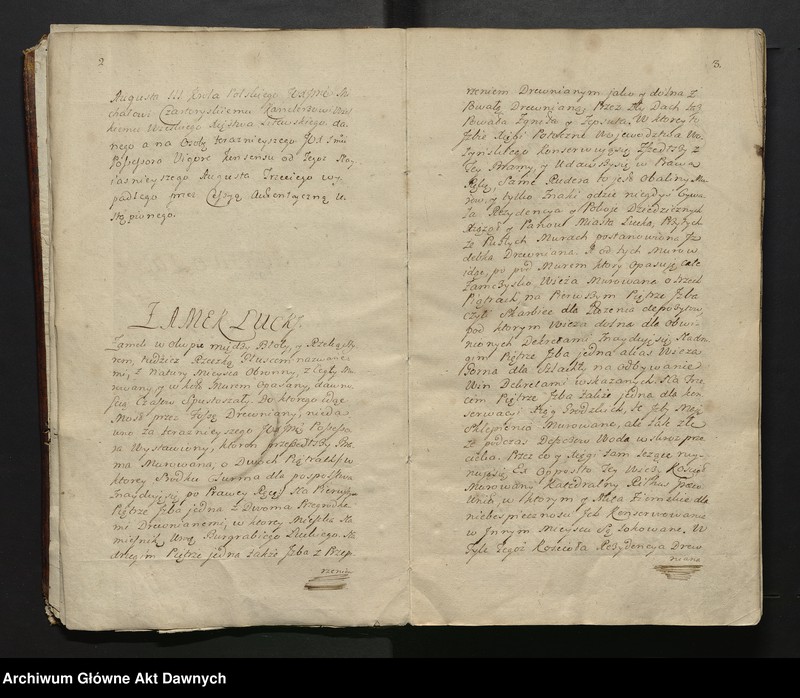 2
Augusta III Krola Polskiego, JWJmci Mi
chałowi Czartoryskiemu Kanclerzowi Wiel
kiemu Wielkiego Xięstwa Litewskiego da
nego a na Osobę teraznieyszego JW Jmci
Possessora Vigore Konsensu od Tegoż Nay
iasnieyszego Augusta Trzeciego wy
padłego przez Cessyą Autentyczną u
stąpionego.
ZAMEK LUCKI.
Zamek w okupie między Błoty, y Rzeką Sty
rem, tudziesz Rzeczką Hłuszcem nazwane
mi, z Natury Mieysca Obronny, z Cegły Mu
rowany, y w koło Murem Opasany, dawno
scią Czasow Spustoszały. Do ktorego idąc
Most przez Fossę Drewniany, nieda
wno za teraznieyszego JW Jmci Possesso
ra Wystawiony, ktoren przeszedłszy Bra
ma Murowana, o Dwoch Piętrach w
ktorey Srodku Turma dla pospolstwa
Znayduie się, po Prawey Ręce Na Pierwszym
Piętrze Izba jedna z Dwoma Przegrodze
mi Drewnianemi, w ktorey Mieszka Na
miesnik Urzę Burgrabiego Łuckiego. Na
drugim Piętrze jedna także Izba z Przep
rzeniem
3.
rzeniem Drewnianym jako y dolna z
Powałą Drewnianą, Przez zły Dach też
Powała Zgniła y Zepsuta. W ktorey to
Izbie Xięgi Potoczne Wojewodztwa Wo
łyńskiego konserwuią się. Przeszedłszy z
Tey Bramy, y Udawszysię w Prawą
Rękę, Same Rudera to jest Obaliny Mu
row, y tylko Znaki gdzie niegdys bywa
ła Rezydencya y Pokoje Dziedzicznych
Xiążąt y Panow Miasta Łucka, Przy tych
że Pustych Murach postanowiona Iz
debka Drewniana. A od tych Murow
idąc, po pod Murem ktory Opasuje całe
Zamczysko, Wieża Murowana o trzech
Piątrach, na Pierwszym Piętrze Izba
czyli Skarbiec dla Złożenia depozytow,
pod ktorym Wieża dolna dla obwi
nionych Dekretami znayduie się. Na dru
gim Piętrze Izba jedna alias Wieża
Gorna dla Szlachty, na odbywanie
Win Dekretami wskazanych. Na Trze
cim Piętrze Izba także jedna dla kon
serwacyi Xiąg Grodzkich, ta jest Na
Sklepienia Murowane, ale tak złe
że podczas Deszczow Woda wskroś prze
cieka. Przez co y Xięgi tam leżące ruy
nuią się. Ex Opposito tey Wieży Kościoł
Murowany Katedralny Ritus Graeco
Uniti, w ktorym y Akta Ziemskie dla
niebespieczności Izb Konserwowania
w Innym Mieyscu Są lokowane. W
Tyle Tegoż Kościoła Rezydencya Drew
niana
Archiwum Główne Akt Dawnych